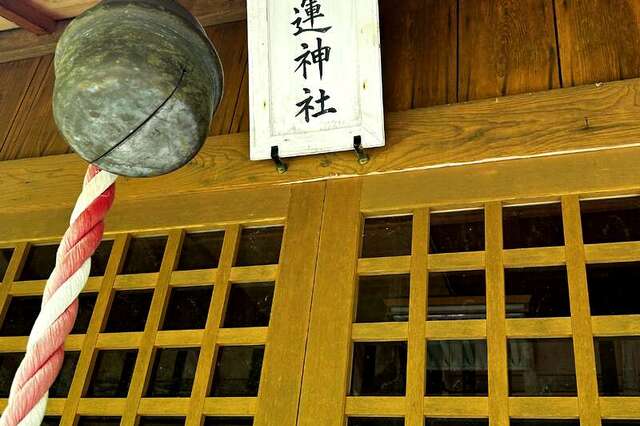 運神社